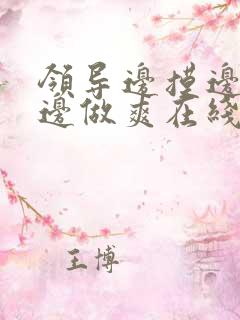 領导邊摸邊
邊做爽在綫
王博